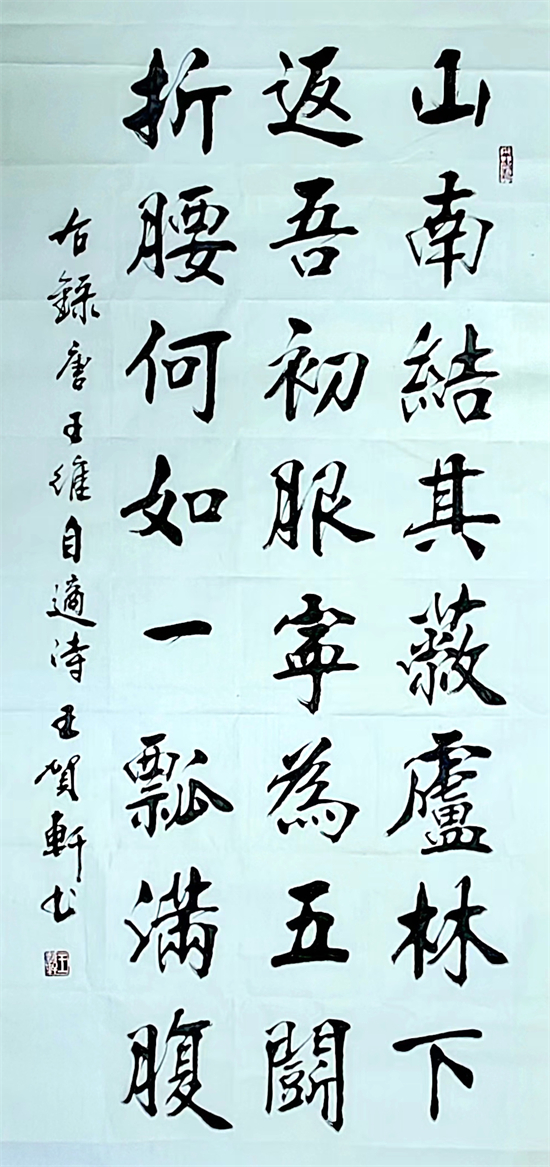 山南結其蔽廬林下
返吾初服寧為五闘
折腰何如一瓢滿腹
右錄唐王維自適詩王賀軒书